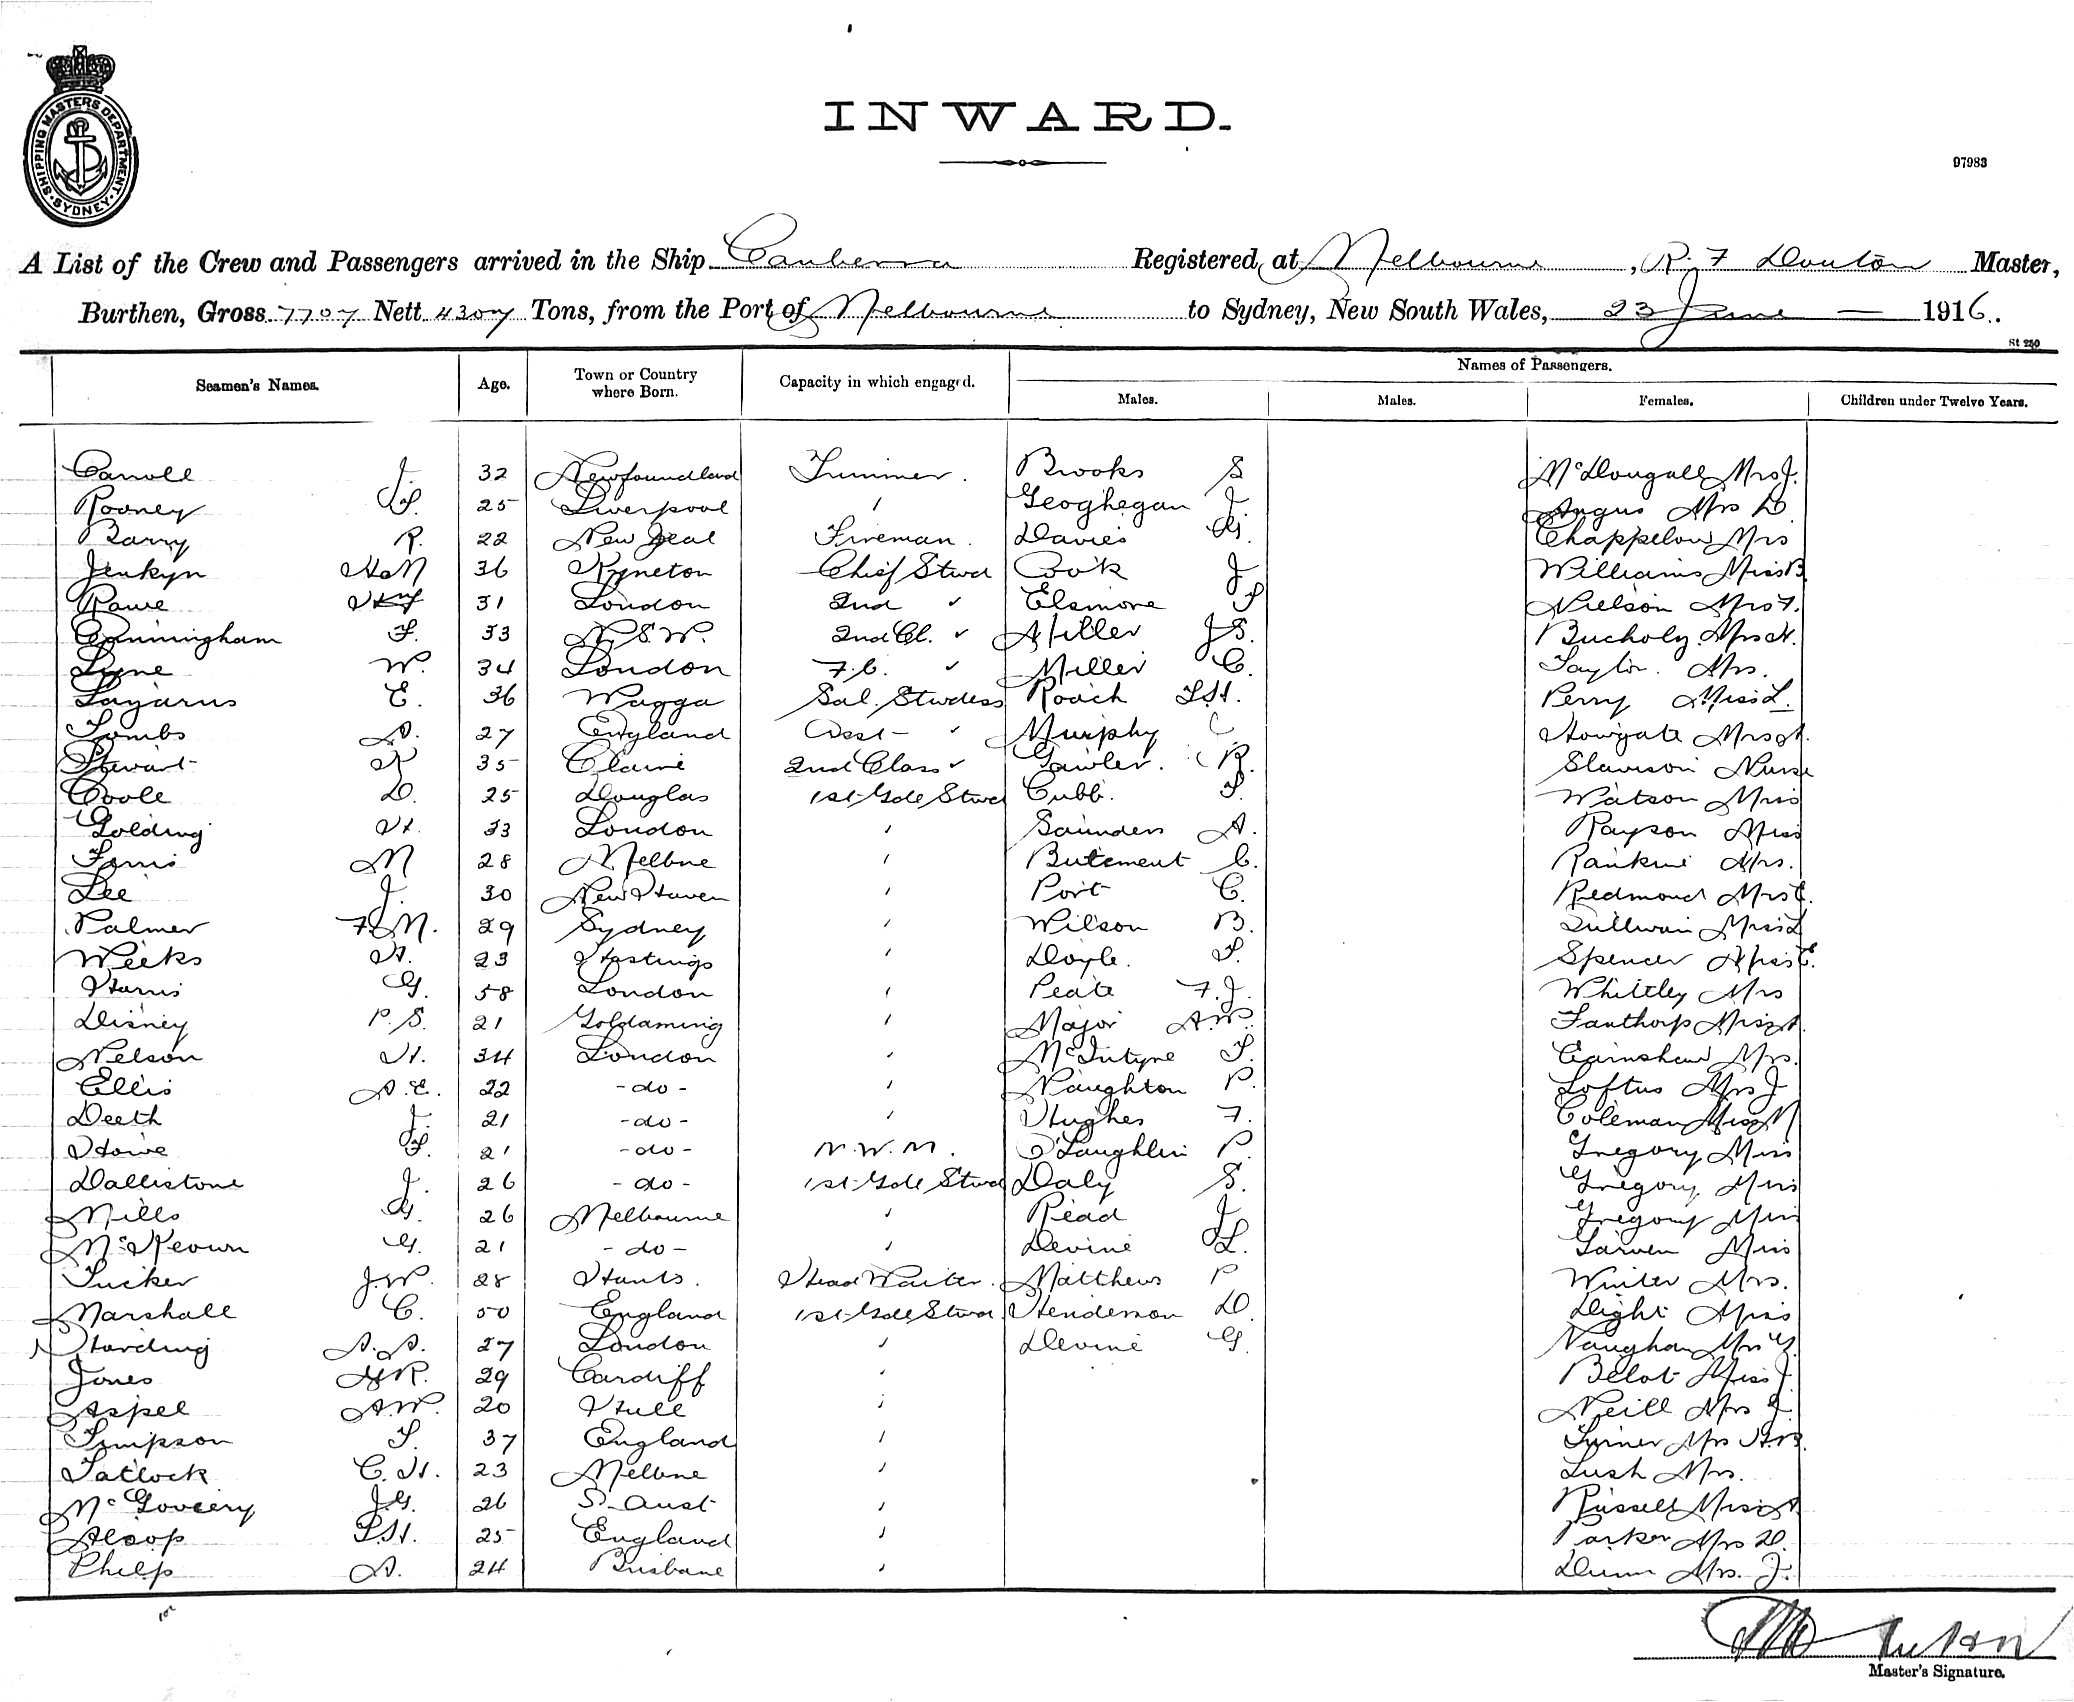 SHIPPING MASTERS DEPARTMENT. SYDNEY.
INWARD.
97983
A List of the Crew and Passengers arrived in the Ship Canberra Registered at Melbourne, R. F Douton Master,
Burthen, Gross 7707 Nett 4307 Tons, from the Port of Melbourne to Sydney, New South Wales, 23 June 1916.
St 250
Seamen's Names. Age. Town or Country where Born. Capacity in which engaged. Names of Passengers.
Males. Males. Females. Children under Twelve Years.
Carroll J. 32 Newfoundland Trimmer. Brooks S McDougall Mrs J.
Rooney 25 Liverpool " Geoghegan J Angus Mrs D
Barry R. 22 New Zeal Fireman. Davies G. Chappelow Mrs
Jenkyn 36 Kyneton Chief Stwd Cook J Williams Miss B
Rawe 31 London 2nd " Elsmore T Nielson Mrs F.
Cunningham T. 33 N.S.W. 2nd Cl. " Miller J S. Bucholz Mrs H.
Lyne W. 34 London F.C. " Miller C. Taylor. Mrs.
Lazarus E. 36 Wagga Sal. Stwdess Roach T.H. Perry Miss L.
Tombs A. 27 England Asst - " Murphy C Howgate Mrs A.
Stewart K 35 2nd Class " Gawler. R. Slawson Nurse
Coole D. 25 Douglas 1st Gde Stwd Cubb. T. Watson Miss
Golding H. 33 London " Saunders A. Rayson Miss
M 28 Melbne " Butement C. Rankine Mrs.
Lee J. 30 New Haven " Port C. Redmond Mrs C.
Palmer 29 Sydney " Wilson B. Sullivan Miss L
Weeks H. 23 Hastings " Doyle. T. Spencer Miss E.
Harris G. 58 London " Peate F. J. Whittley Mrs
Disney P. S. 21 Goldaming " Major A.W. Fanthorp Miss A.
Nelson H. 34 London " McIntyre T. Earnshaw Mrs.
Ellis A. E. 22 - do - " Naughton P. Loftus Mrs J
Deeth J. 21 - do - " Hughes F. Coleman Miss M
Howe T. 21 - do - N. W. M. O'Laughlin P. Gregory Miss
Dallistone J. 26 - do - 1st Gde Stwd Daly S. Gregory Miss
Mills G. 26 Melbourne " Read J Gregory Miss
McKeown G. 21 - do - " Devine L. Garven Miss
Tucker J.W. 28 Hants. Head Waiter. Matthews P Winter Mrs.
Marshall C. 50 England 1st Gde Stwd. Henderson D. Dight Miss
Harding A. A. 27 London " Devine G. Vaughan Mrs G.
Jones 29 Cardiff " Belot Miss J.
Aspel A.W. 20 Hull " Neill Mrs J.
Simpson T. 37 England " Turner Mrs
Tatlock C. H. 23 Melbne " Lush Mrs.
J.G. 26 S. Aust " Russell Miss A.
Alsop T.H. 25 England " Parker Mrs D.
Philp A. 24 Brisbane " Dunn Mrs. J.
Master's Signature.